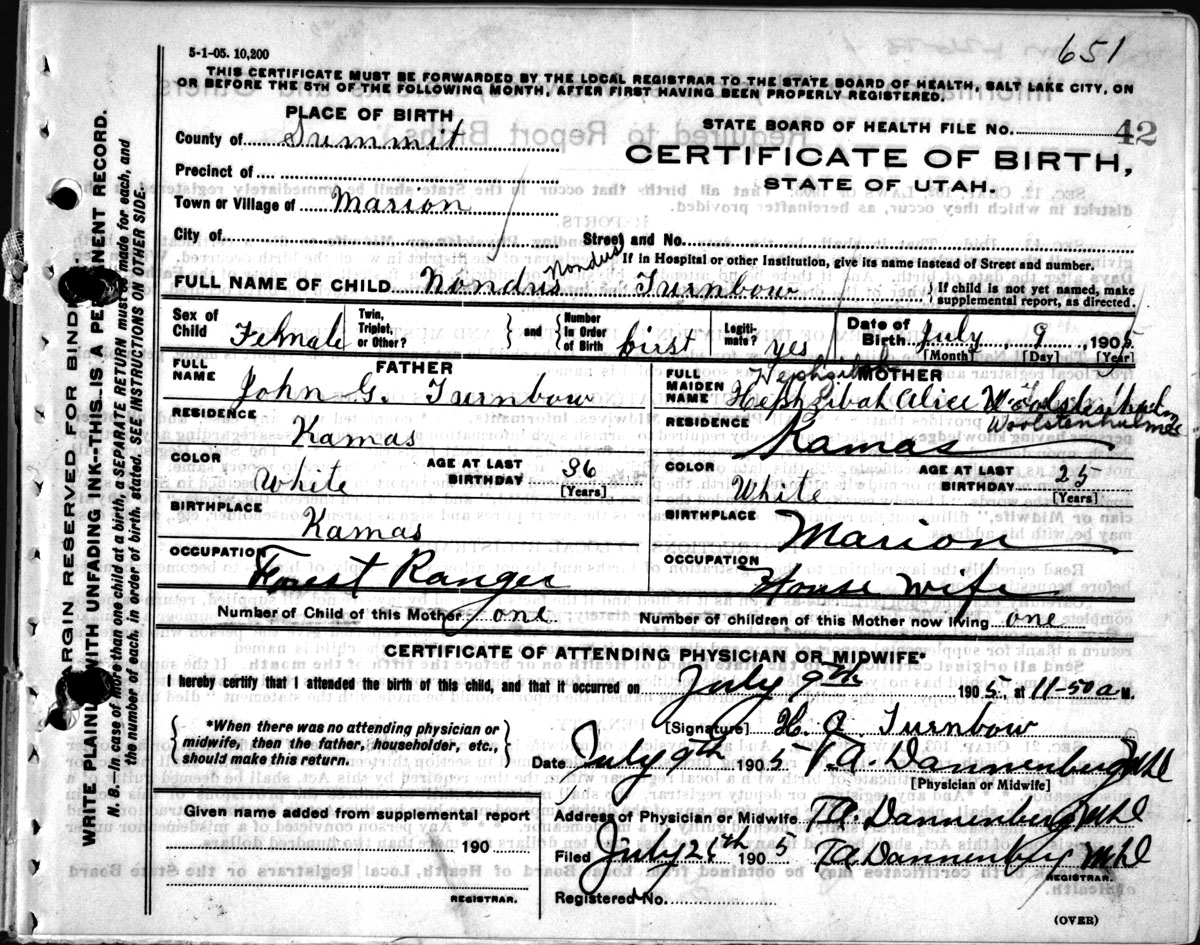 5-1-05. 10,200
651
THIS CERTIFICATE MUST BE FORWARDED BY THE LOCAL REGISTRAR TO THE STATE BOARD OF HEALTH, SALT LAKE CITY, ON
OR BEFORE THE 5TH OF THE FOLLOWING MONTH, AFTER FIRST HAVING BEEN PROPERLY REGISTERED.
PLACE OF BIRTH
County of Summit
Precinct of
Town or Village of Marion
STATE BOARD OF HEALTH FILE NO. 42
CERTIFICATE OF BIRTH,
STATE OF UTAH.
City of Street and No.
Nondus
If in Hospital or other Institution, give its name instead of Street and number.
FULL NAME OF CHILD Nondus Turnbow } If child is not yet named, make supplemental report, as directed.
Sex of Child Female Twin, Triplet, or Other? } and { Number In Order of Birth first Legiti-mate? yes Date of Birth July 9 1905
[Month] [Day] [Year]
FATHER
FULL NAME John G. Turnbow
RESIDENCE
Kamas
COLOR White AGE AT LAST BIRTHDAY 36
[Years]
BIRTHPLACE
Kamas
OCCUPATION
Forest Ranger
MOTHER
FULL MAIDEN NAME Hephzibah Alice
Woolstenhulmes
RESIDENCE
Kamas
COLOR White AGE AT LAST BIRTHDAY 25
[Years]
BIRTHPLACE
Marion
OCCUPATION
House wife
Number of Child of this Mother one Number of children of this Mother now living one
CERTIFICATE OF ATTENDING PHYSICIAN OR MIDWIFE*
I hereby certify that I attended the birth of this child, and that it occurred on July 9th 1905, at 11-50 a M.
{ *When there was no attending physician or midwife, then the father, householder, etc., should make this return. }
[Signature] H. J. Turnbow
Date July 9th 1905 T.A. Dannenberg Mhl
[Physician or Midwife]
Given name added from supplemental report
190
REGISTRAR.
Address of Physician or Midwife T.A. Dannenberg Mhl
Filed July 1905 T.A. Dannenberg Mhl
REGISTRAR.
Registered No.
(OVER)
MARGIN RESERVED FOR BINDING
WRITE PLAINLY WITH UNFADING INK--THIS IS A PERMANENT RECORD.
N. B.--In case of more than one child at a birth, a SEPARATE RETURN must be made for each, and
the number of each, in order of birth, stated. SEE INSTRUCTIONS ON OTHER SIDE.